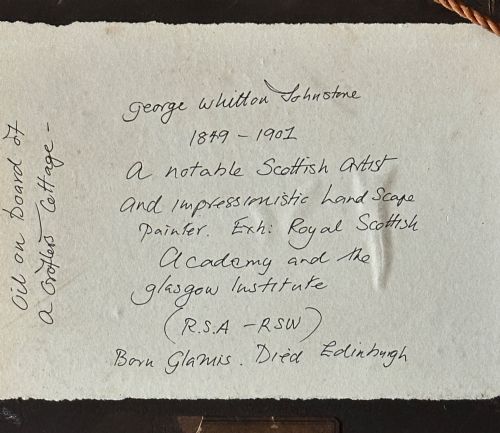 george Whitton Johnstone
1849 - 1901
A notable Scottish Artist
and impressionistic Land Scape
Painter. Exh: Royal Scottish
Academy and the
glasgow Institute
(R.S.A - RSW)
Born Glamis. Died Edinburgh
Oil on board of
a Crofters Cottage -